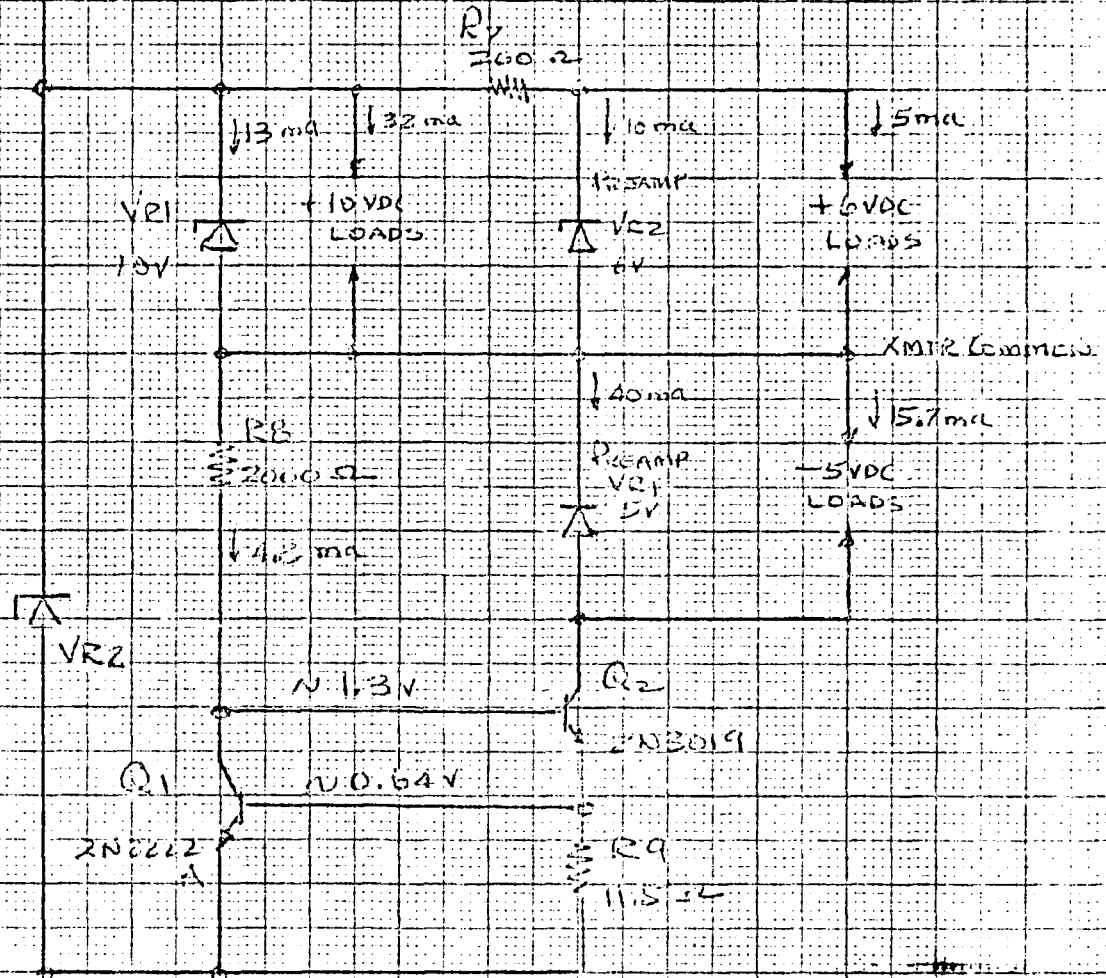 R7
260 Ω
↓13 ma
↓32 ma
↓10 ma
↓5 ma
VR1
10V
+10 VDC
LOADS
PREAMP
VR2
6V
+6VDC
LOADS
XMTR COMMON
↓40 ma
↓15.7 ma
R8
2000 Ω
PREAMP
VR1
5V
-5VDC
LOADS
↓4.3 ma
VR2
~ 1.3 V
Q2
2N3019
Q1
~ 0.64 V
2N2222
A
R9
11.5 Ω